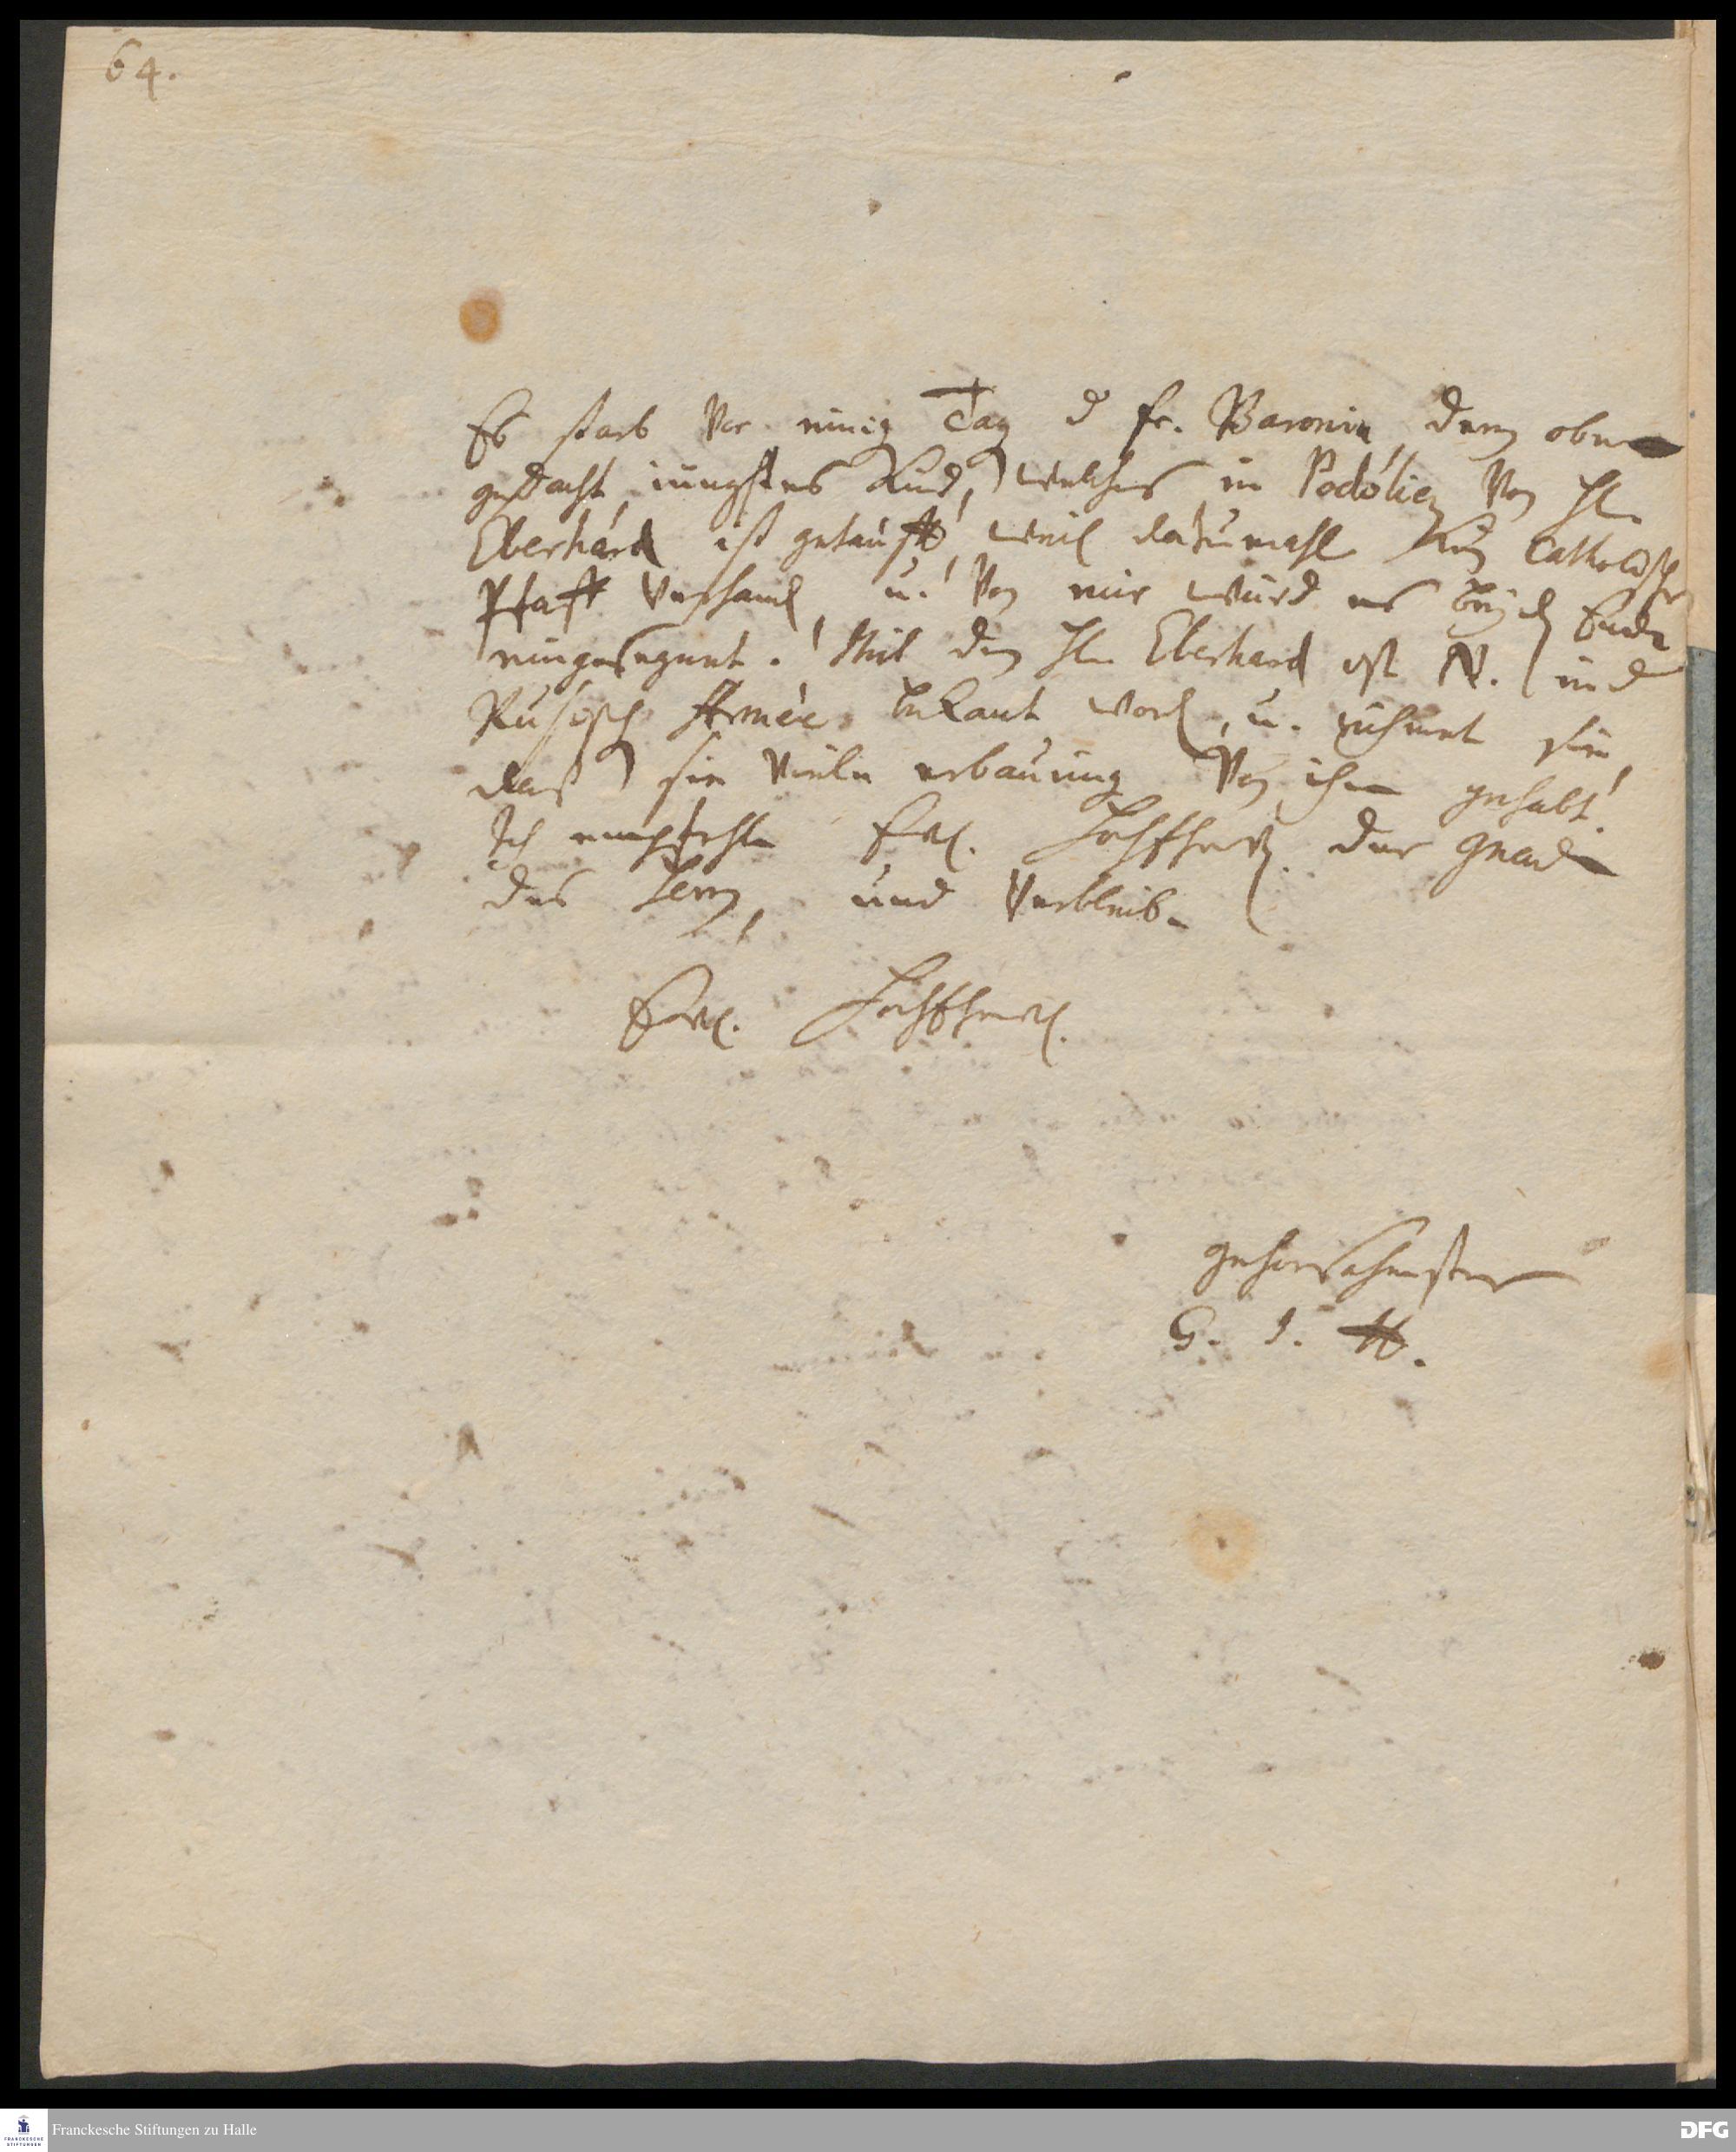 64.
Es starb vor einig Tag d fr. Baronin, dern oben
gedacht jüngstes Kind, welches in Podolien von H.
Eberhard ist getaufft, weil dazumahl kein Catholischer
Pfaff verhand, u. von mir wurd es bey d Ende
eingesegnet. Mit dem H. Eberhard ist N. in d
Rußisch Armée bekant word, u. rühmet sie,
daß sie viele erbauung von ihm gehabt.
Ich empfehle Ew. Hochehrw. der Gnade
des Herrn, und verbleibe
Ew. Hochehrw.
gehorsahmster
G. J. H.
Franckesche Stiftungen zu Halle
DFG